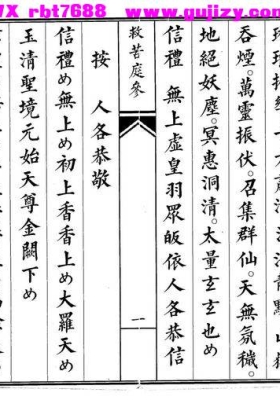 WX rbt7688 www.gujizy.com
吞煙。萬靈振伏。召集群仙。天無氛穢。
地絕妖塵。冥惠洞清。太量玄玄也め
信禮　無上虛皇羽眾皈依人各恭信
救苦庭參
一
按　人各恭敬
信禮め無上め初上香香上め大羅天め
玉清聖境元始天尊金闕下め